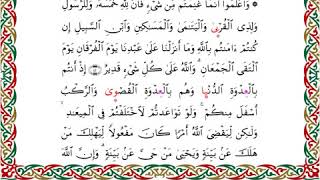 ۞ وَٱعْلَمُوٓا۟ أَنَّمَا غَنِمْتُم مِّن شَىْءٍ فَأَنَّ لِلَّهِ خُمُسَهُۥ وَلِلرَّسُولِ
وَلِذِى ٱلْقُرْبَىٰ وَٱلْيَتَٰمَىٰ وَٱلْمَسَٰكِينِ وَٱبْنِ ٱلسَّبِيلِ إِن
كُنتُمْ ءَامَنتُم بِٱللَّهِ وَمَآ أَنزَلْنَا عَلَىٰ عَبْدِنَا يَوْمَ ٱلْفُرْقَانِ يَوْمَ
ٱلْتَقَى ٱلْجَمْعَانِ ۗ وَٱللَّهُ عَلَىٰ كُلِّ شَىْءٍ قَدِيرٌ ﴿٤١﴾ إِذْ أَنتُم
بِٱلْعِدْوَةِ ٱلدُّنْيَا وَهُم بِٱلْعِدْوَةِ ٱلْقُصْوَىٰ وَٱلرَّكْبُ
أَسْفَلَ مِنكُمْ ۚ وَلَوْ تَوَاعَدتُّمْ لَٱخْتَلَفْتُمْ فِى ٱلْمِيعَٰدِ ۙ
وَلَٰكِن لِّيَقْضِىَ ٱللَّهُ أَمْرًا كَانَ مَفْعُولًا لِّيَهْلِكَ مَنْ
هَلَكَ عَنۢ بَيِّنَةٍ وَيَحْيَىٰ مَنْ حَىَّ عَنۢ بَيِّنَةٍ ۗ وَإِنَّ ٱللَّهَ